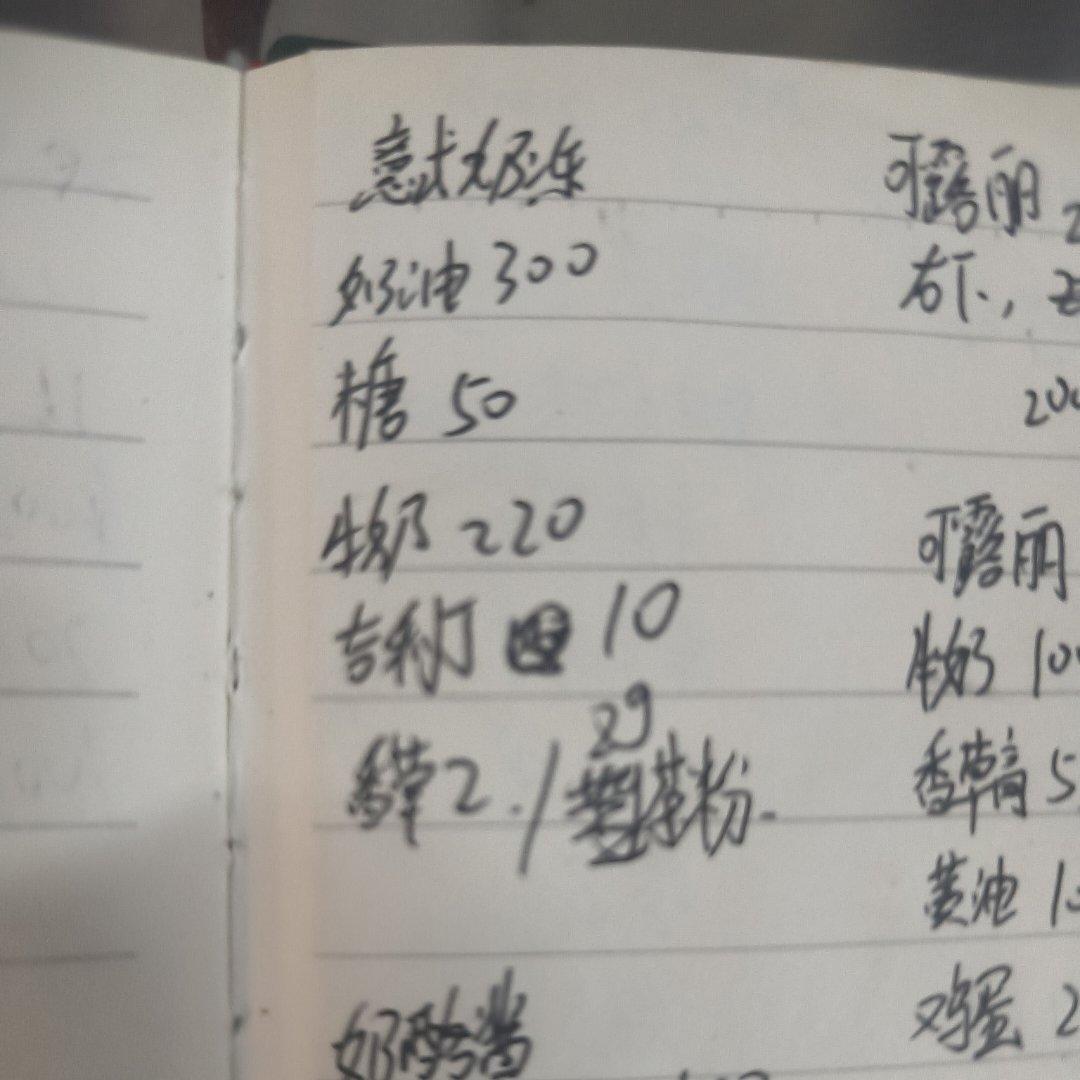 意式奶冻
奶油 300
糖 50
牛奶 220
吉利丁 10
香草2. / 2g 茶粉.
奶酪酱
可露丽 2
右下,
200
可露丽
牛奶 10
香草膏 5
黄油 1
鸡蛋 2